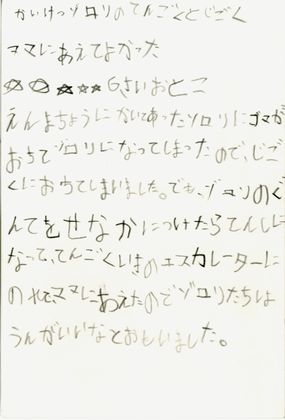 かいけつゾロリのてんごくとじごく
ママにあえてよかった
6さいおとこ
えんまちょうにかいてあったソロリにゴマが
おちてゾロリになってしまったので、じご
くにおちてしまいました。でも、ゾロリのぐ
んてをせなかにつけたらてんしに
なって、てんごくいきのエスカレーターに
のれてママにあえたのでゾロリたちは
うんがいいなとおもいました。